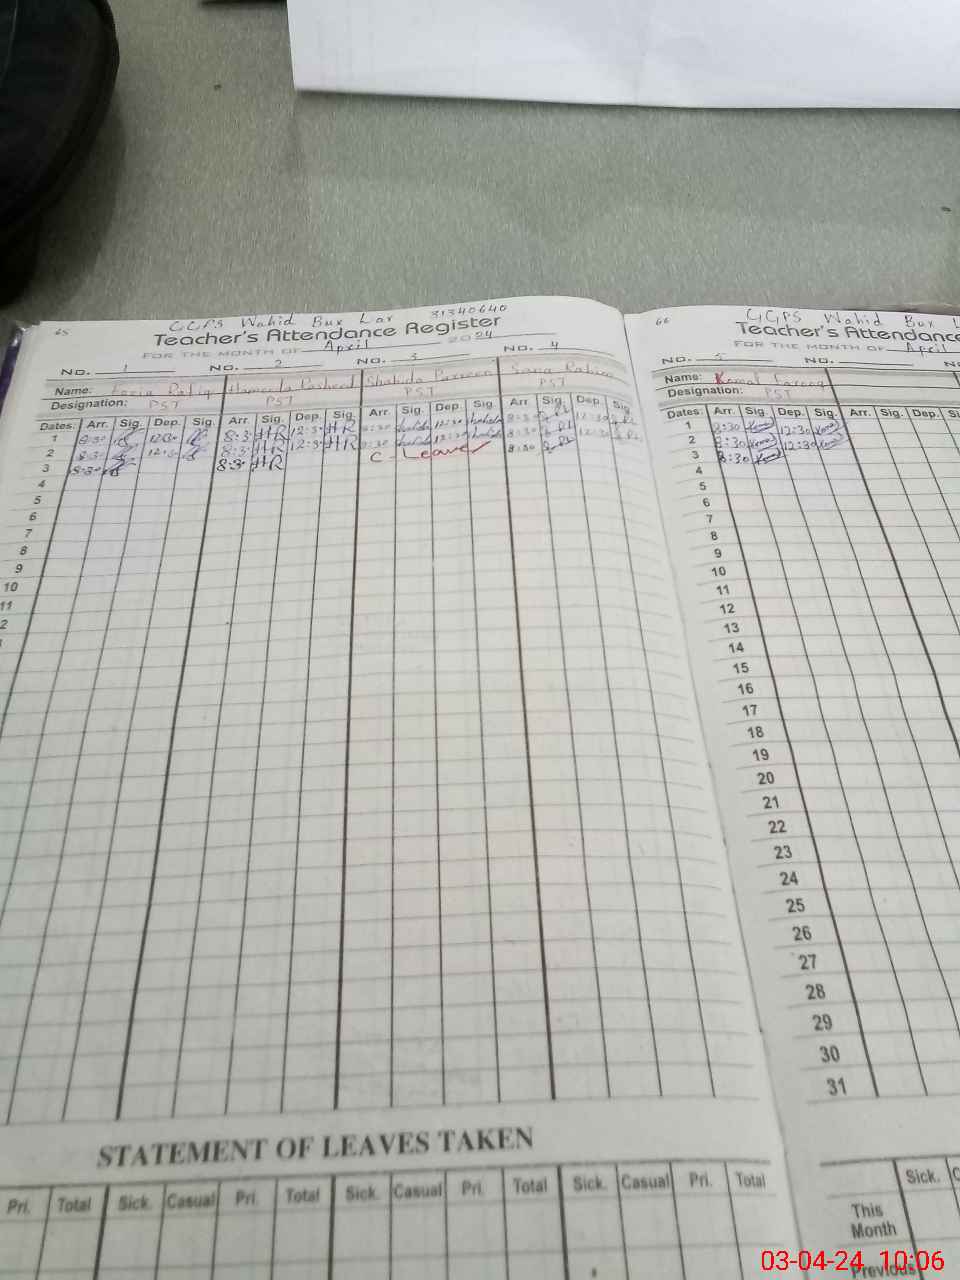 65
GGPS Wahid Bux Lar 31340640
Teacher's Attendance Register
FOR THE MONTH OF April 2024
No. 1 No. 2 No. 3 No. 4
Name: Fozia Rafiq Hameeda Rasheed Shahida Parveen Sana Rahim
Designation: PST PST PST PST
Dates: Arr. Sig. Dep. Sig. Arr. Sig. Dep. Sig. Arr. Sig. Dep. Sig. Arr. Sig. Dep. Sig.
1 8:30 12:30 8:3 HR 12:3 HR 8:30 Shahida 12:30 Shahida 8:30 12:30
2 8:3 12:3 8:3 HR 12:3 HR 8:30 Shahida 12:30 Shahida 8:30 12:30
3 8:30 8:3 HR C - Leave 8:30
4
5
6
7
8
9
10
11
2
STATEMENT OF LEAVES TAKEN
Pri. Total Sick. Casual Pri. Total Sick. Casual Pri. Total Sick. Casual Pri. Total
66
GGPS Wahid Bux L
Teacher's Attendance
FOR THE MONTH OF April
No. 5 No.
Name: Komal Farooq
Designation: PST
Dates: Arr. Sig. Dep. Sig. Arr. Sig. Dep. Si
1 8:30 Komal 12:30 Komal
2 8:30 Komal 12:30 Komal
3 8:30 Komal
4
5
6
7
8
9
10
11
12
13
14
15
16
17
18
19
20
21
22
23
24
25
26
27
28
29
30
31
Sick. C
This
Month
Previous
03-04-24 10:06